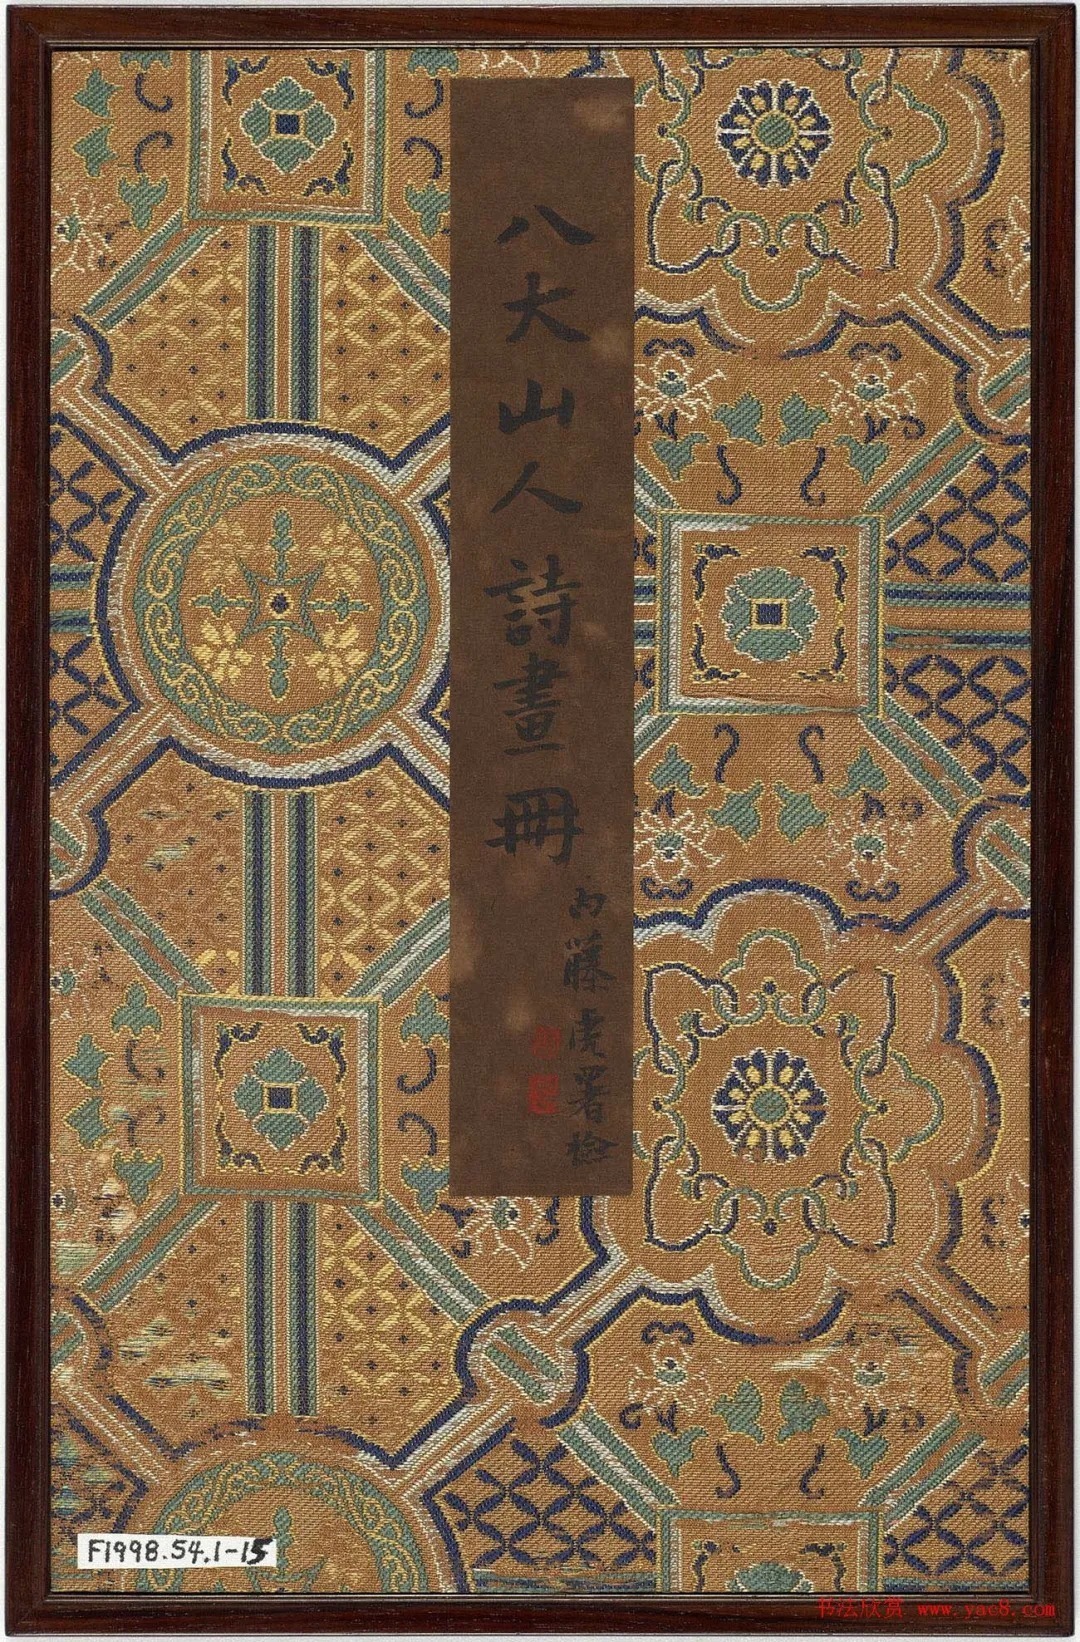 八大山人詩畫冊
內藤虎署檢
F1998.54.1-15
书法欣赏 www.yac8.com